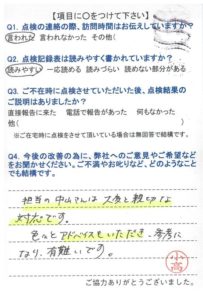 【項目に〇をつけて下さい】
Q1. 点検の連絡の際、訪問時間はお伝えしていますか?
言われた 言われなかった その他(
Q2. 点検記録表は読みやすく書かれていますか?
読みやすい 一応読める 読みづらい 読めない部分がある
Q3. ご不在時に点検させていただいた後、点検結果のご説明はありましたか?
直接報告に来た 電話で報告があった 何もなかった
他( )
※ご在宅時に点検をさせて頂いている場合は無回答で結構です。
Q4. 今後の改善の為に、弊社へのご意見やご希望などをお聞かせください。ご不満やお叱りなど、どのようなことでも結構です。
担当の中山さんは大変と親切な
対応です。
色々とアドバイスもいただき、参考に
なり、有難いです。
小高
ご協力ありがとうございました。